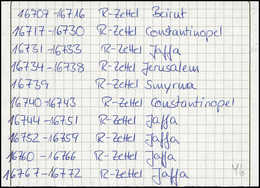 16707-16716 R-Zettel Beirut
16717-16730 R-Zettel Constantinopel
16731-16733 R-Zettel Jaffa
16734-16738 R-Zettel Jerusalem
16739 R-Zettel Smyrna
16740-16743 R-Zettel Constantinopel
16744-16751 R-Zettel Jaffa
16752-16759 R-Zettel Jaffa
16760-16766 R-Zettel Jaffa
16767-16772 R-Zettel Jaffa